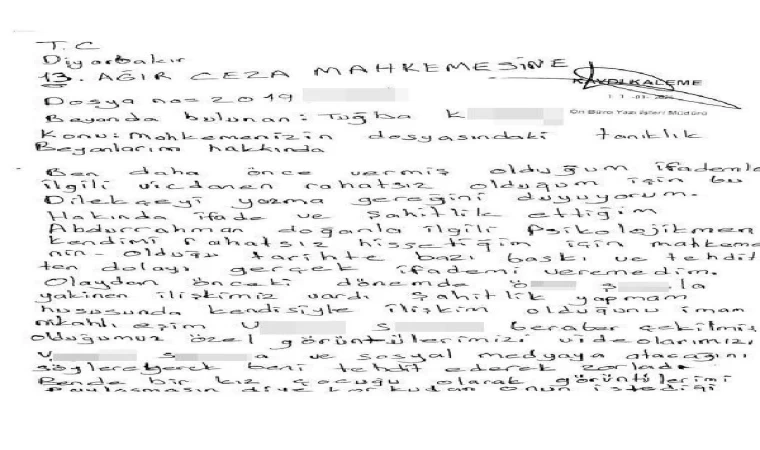 T.C
Diyarbakır
13. AĞIR CEZA MAHKEMESİNE
KAYDI KALEME
Ön Büro Yazı İşleri Müdürü
Dosya no: 2019
Beyanda bulunan: Tuğba K
Konu: Mahkemenizin dosyasındaki tanıklık
Beyanlarım hakkında
Ben daha önce vermiş olduğum ifademle
ilgili vicdanen rahatsız olduğum için bu
Dilekçeyi yazma gereğini duyuyorum.
Hakında ifade ve şahitlik ettiğim
Abdurrahman doğanla ilgili Psikolejikmen
kendimi rahatsız hissettiğim için mahkeme
nin olduğu tarihte bazı baskı ve tehdit
ten dolayı gerçek ifademi veremedim.
Olaydan önceki dönemde Ö Ş la
yakinen ilişkimiz vardı şahitlik yapmam
hususunda kendisiyle ilişkim olduğunu imam
nikahlı eşim V S beraber çekilmiş
olduğumuz özel görüntülerimizi videolarımızı
V S a ve sosyal medyaya atacağını
söyleyerek beni tehdit ederek zorladı
Bende bir kız çocuğu olarak görüntülerimi
paylaşmasın diye korkudan onun istediği